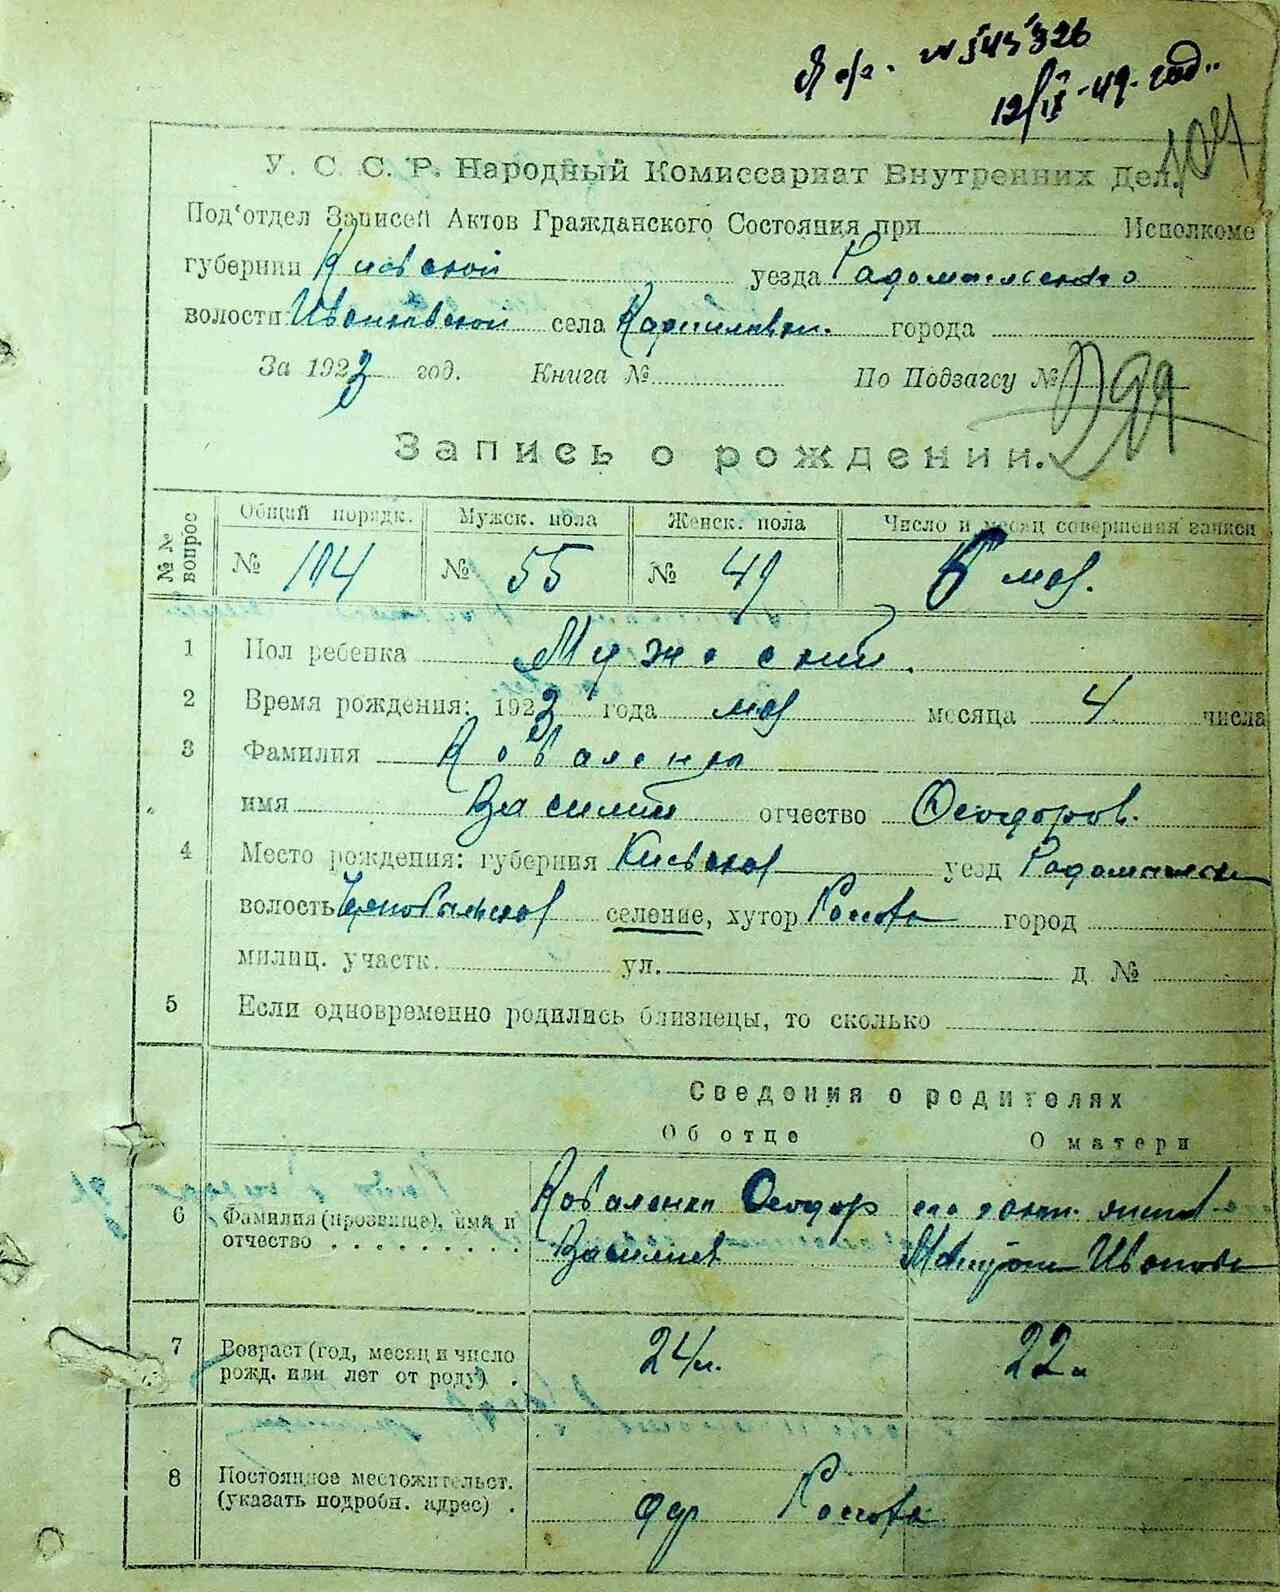 № 543326
12/IX-49 год.
104
У. С. С. Р. Народный Комиссариат Внутренних Дел.
Под'отдел Записей Актов Гражданского Состояния при Исполкоме
губернии Киевской уезда Радомысльского
волости Иванковской села Карпиловки города
За 1923 год. Книга № По Подзагсу №
Запись о рождении.
№№ вопрос Общий порядк. Мужск. пола Женск. пола Число и месяц совершения записи
№ 104 № 55 № 49 6 мая.
1 Пол ребенка Мужский.
2 Время рождения: 1923 года мая месяца 4 числа
3 Фамилия Коваленко
имя Василий отчество Феодоров.
4 Место рождения: губерния Киевская уезд Радомысльск
волость Чернобыльская селение, хутор город
милиц. участк. ул. д. №
5 Если одновременно родились близнецы, то сколько
Сведения о родителях
Об отце О матери
6 Фамилия (прозвище), имя и Коваленко Феодор его закон. жена
отчество Василиев Иванова
7 Возраст (год, месяц и число 24 л. 22 л
рожд. или лет от роду)
8 Постоянное местожительст.
(указать подробн. адрес)